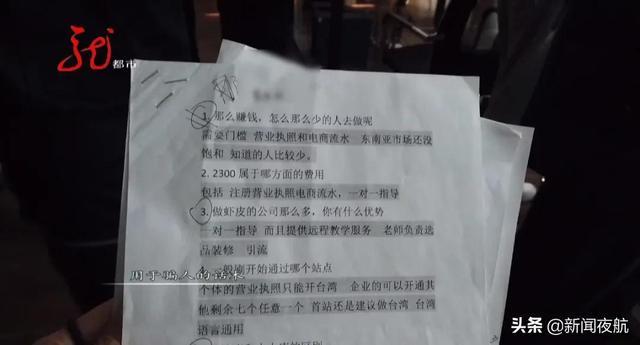 龙
都市
1. 那么赚钱，怎么那么少的人去做呢
需要门槛 营业执照和电商流水 东南亚市场还没
饱和 知道的人比较少。
2. 2300 属于哪方面的费用
包括 注册营业执照电商流水，一对一指导
3. 做虾皮的公司那么多，你有什么优势
一对一指导 而且提供远程教学服务 老师负责选
品装修 引流
4. 一般刚开始通过哪个站点
个体的营业执照只能开台湾 企业的可以开通其
他剩余七个任意一个 首站还是建议做台湾 台湾
语言通用
用于骗人的话术
头条 @新闻夜航